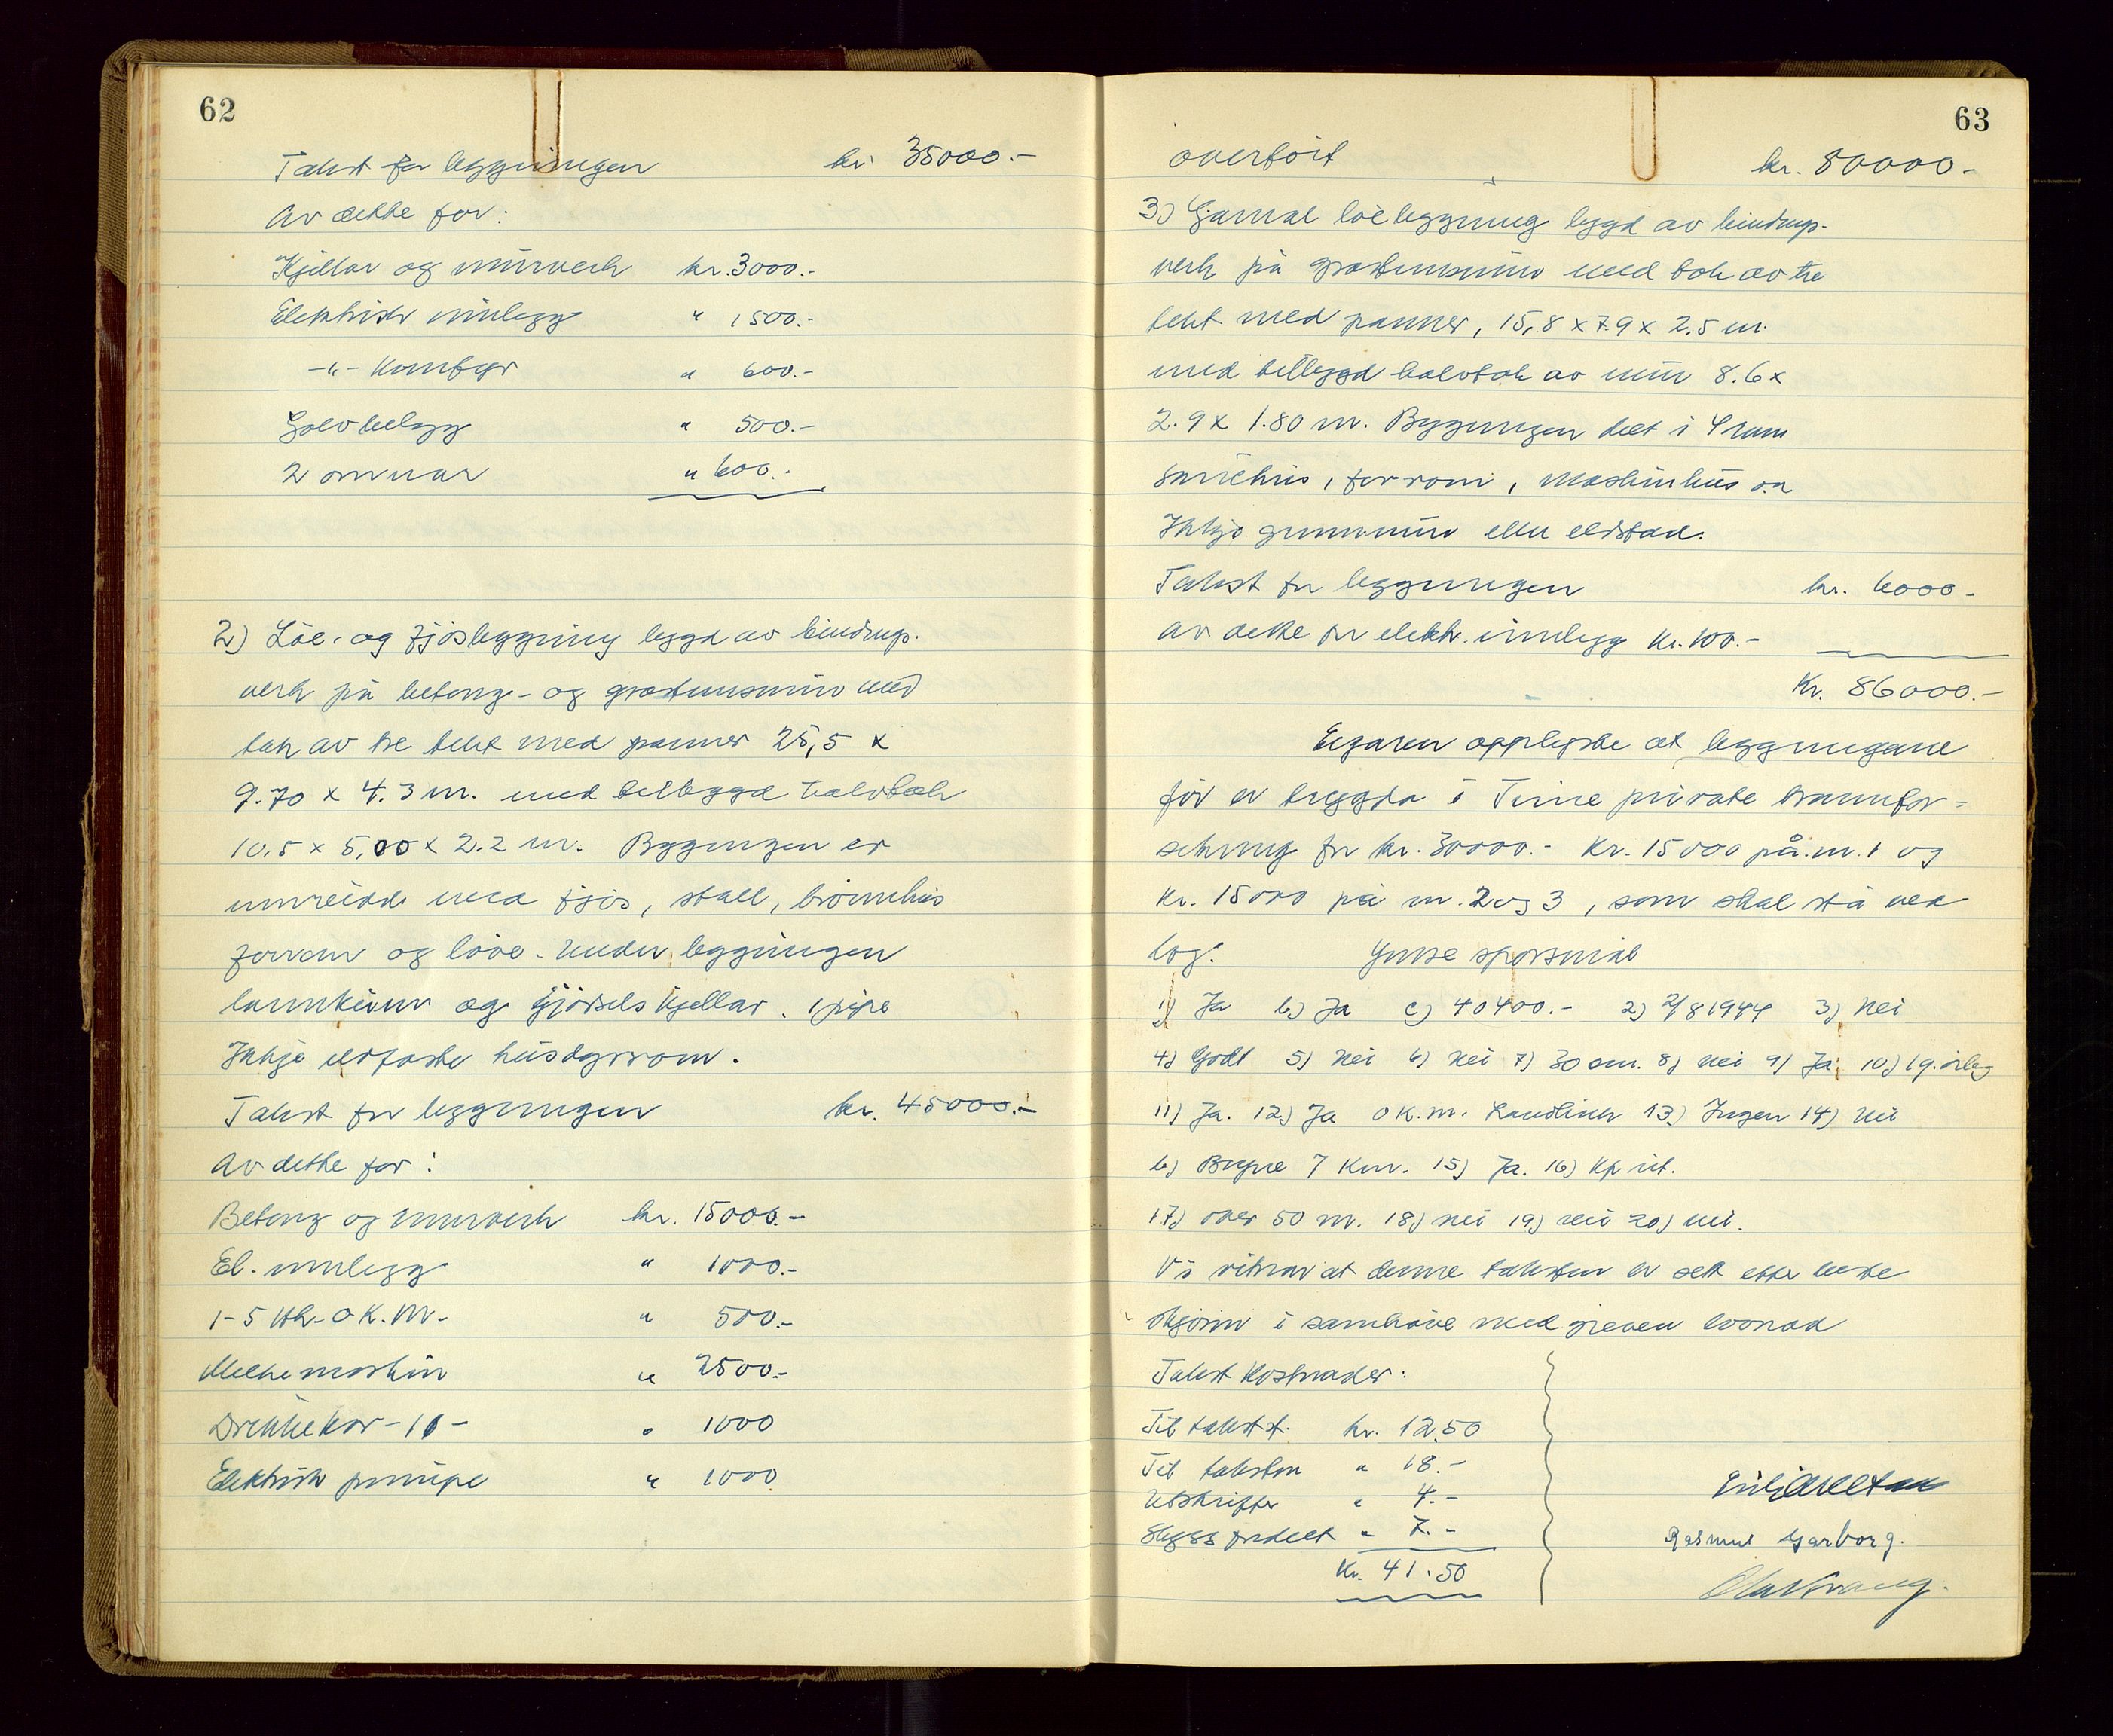 62
Takst for bygningen kr 35000.-
Av dette for:
Kjellar og murverk kr. 3000.-
Elektrisk innlegg " 1500.-
-"- Komfyr " 600.-
Golvbelegg " 500.-
2 omnar " 600.-
2) Löe- og fjösbygning bygd av bindings-
verk på betong- og gråsteinsmur med
tak av tre tekt med panner 25,5 x
9.70 x 4.3 m. med tilbygd halvtak
10.5 x 5,00 x 2.2 m. Bygningen er
innreidd med fjös, stall, brönnhus
forrom og löve. Under bygningen
landkum og gjödselskjellar. 1 pipe
Ikkje eldfaste husdyrrom.
Takst for bygningen kr. 45000.-
Av dette for:
Betong og murverk kr. 15000.-
El. innlegg " 1000.-
1-5 Hk. o K.m. " 500.-
Melkemaskin " 2500.-
Drikkekar -10- " 1000
Elektrisk pumpe " 1000
63
overfört kr. 80000.-
3) Gamal löebygning bygd av bindings-
verk på gråsteinsmur med tak av tre
tekt med panner, 15,8 x 7.9 x 2.5 m.
med tilbygd halvtak av mur 8.6 x
2.9 x 1.80 m. Bygningen delt i 4 rom
Grisehus, forrom, maskinhus o.a
Ikkje grunnmur eller eldstad.
Takst for bygningen kr. 6000.-
Av dette for elektr. innlegg Kr. 100.-
Kr. 86000.-
Eigaren opplyste at bygningane
för er trygda i Time private brannfor-
sikring for kr. 30000.- Kr. 15000 på nr. 1 og
Kr. 15000 på nr. 2 og 3, som skal stå ved
lag. Ymse spörsmål
1) Ja b) Ja c) 40400.- 2) 2/8 1944 3) Nei
4) Godt 5) Nei 6) Nei 7) 30 cm. 8) Nei 9) Ja 10) 1 g. årleg
11) Ja. 12) Ja o K.m. Landbruk 13) Ingen 14) Nei
b) Bryne 7 Km. 15) Ja. 16) Kp nit.
17) over 50 m. 18) Nei 19) Nei 20) Nei.
Vi vitnar at denne taksten er sett etter beste
skjönn i samhöve med gieven lovnad
Takst kostnader:
Til takst f. kr. 12.50
Til taksten " 18.-
Utskrifter " 4.-
Skyss fordelt " 7.-
Kr. 41.50
Rasmus Garborg.